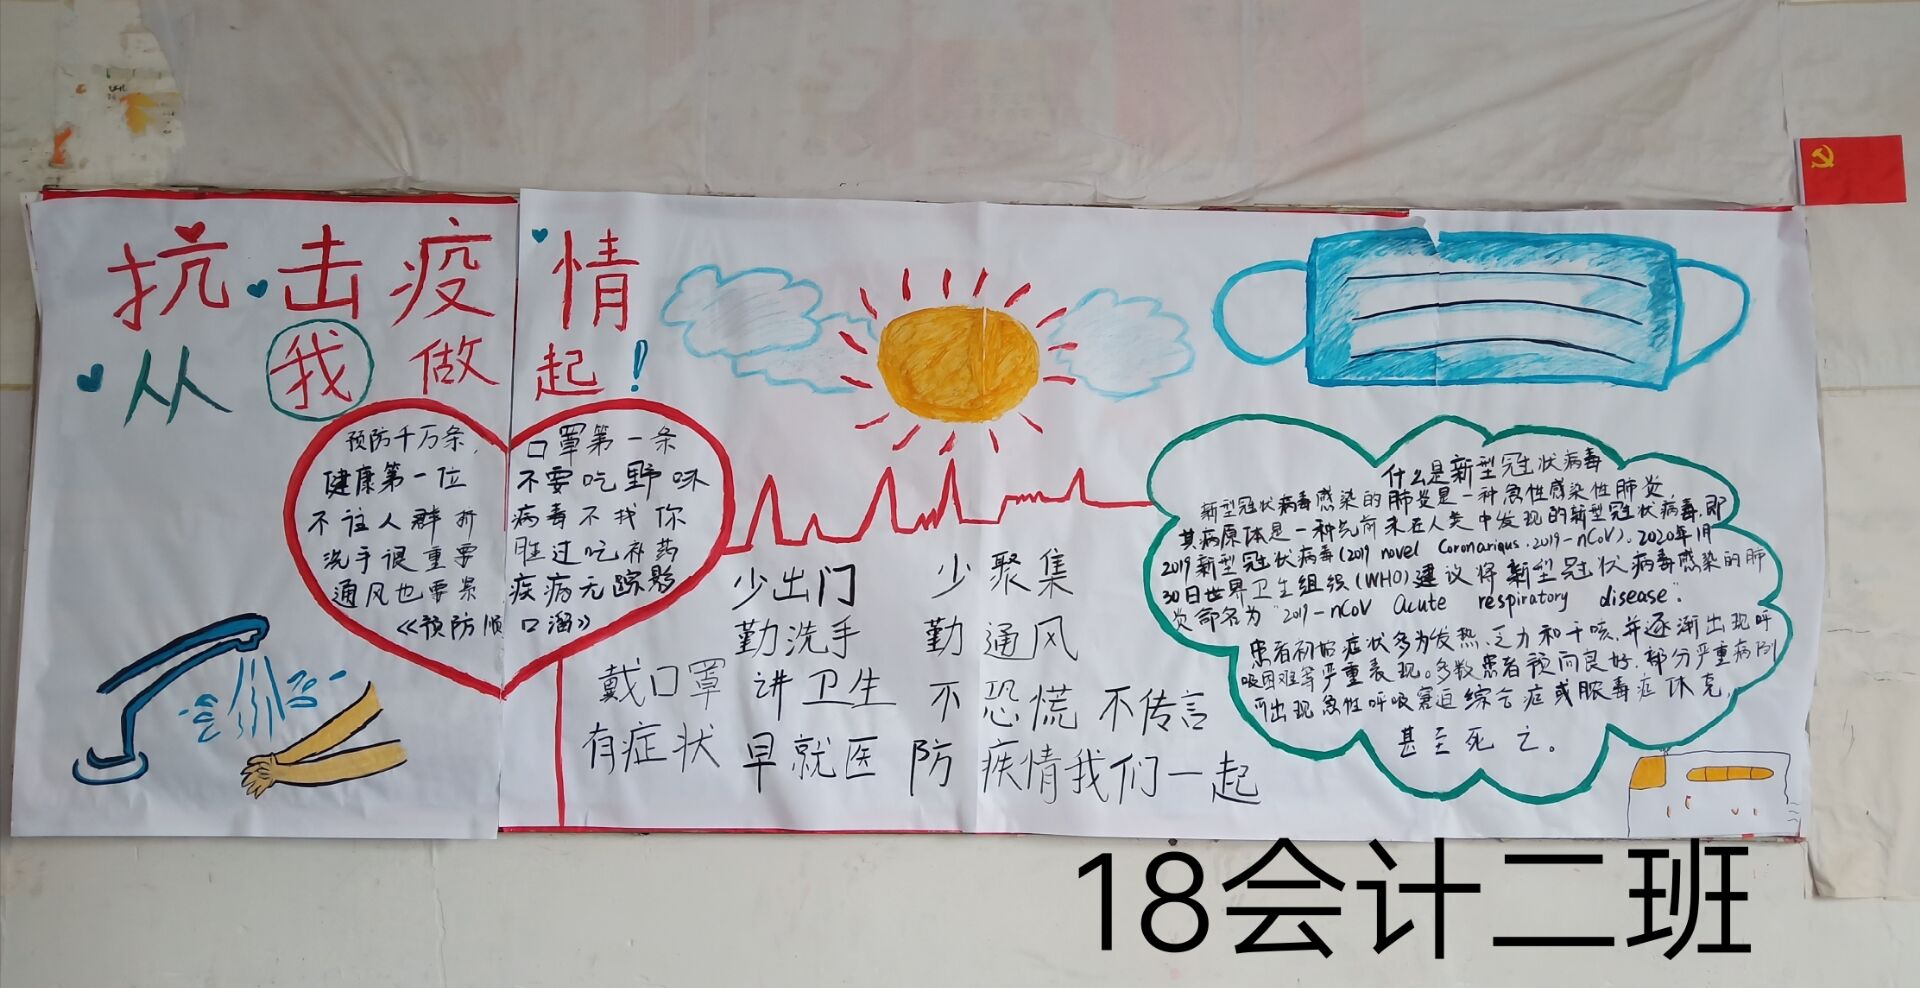 抗击疫情
从我做起！
预防千万条，口罩第一条
健康第一位 不要吃野味
不往人群挤 病毒不找你
洗手很重要 胜过吃补药
通风也要紧 疾病无踪影
《预防顺口溜》
少出门 少聚集
勤洗手 勤通风
戴口罩 讲卫生 不恐慌 不传言
有症状 早就医 防疾情我们一起
什么是新型冠状病毒
新型冠状病毒感染的肺炎是一种急性感染性肺炎，
其病原体是一种先前未在人类中发现的新型冠状病毒，即
2019新型冠状病毒(2019 novel Coronariqus，2019-nCoV)。2020年1月
30日世界卫生组织(WHO)建议将新型冠状病毒感染的肺
炎命名为"2019-nCoV Acute respiratory disease"。
患者初始症状多为发热、乏力和干咳，并逐渐出现呼
吸困难等严重表现。多数患者预向良好，部分严重病例
可出现急性呼吸窘迫综合症或脓毒症休克，
甚至死亡。
18会计二班